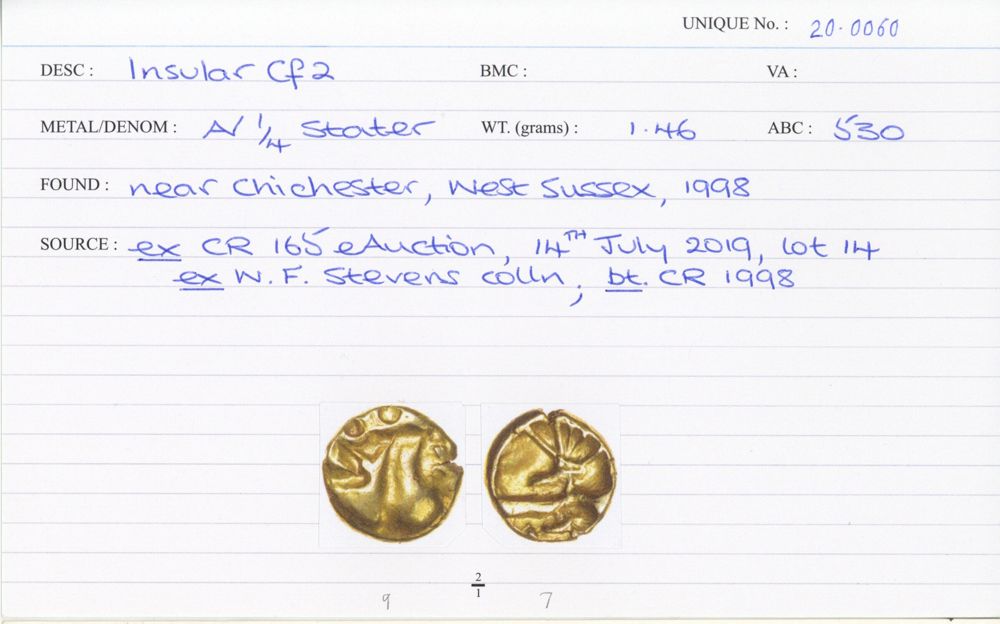 UNIQUE No. : 20.0060
DESC : Insular Cf2 BMC : VA :
METAL/DENOM : A/ 1/4 Stater WT. (grams) : 1.46 ABC : 530
FOUND : near Chichester, West Sussex, 1998
SOURCE : ex CR 165 eAuction, 14TH July 2019, lot 14
ex W. F. Stevens colln, bt. CR 1998
2/1
9 7